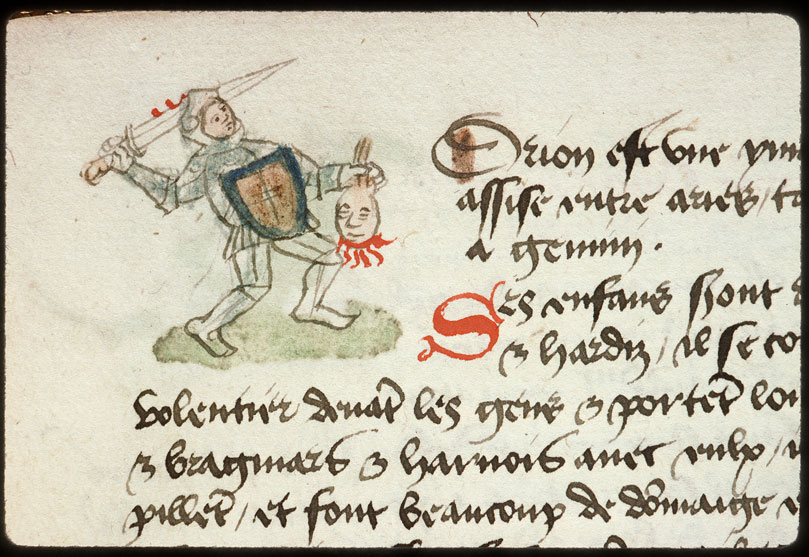 Orion est vne ym
assise entre aries / ta
a gemini .
Ses enfans sont
⁊ hardiz / il se co
volentier deuāt les gens ⁊ portēt lon
⁊ bragmars ⁊ harnois auec eulx / i
pillēt / et font beaucoup de dōmaige e